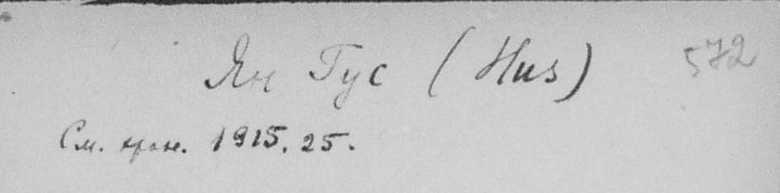 Ян Гус (Hus) 572
См. хрон. 1915. 25.